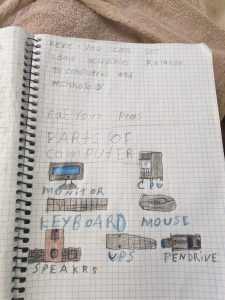 Here you can see
some activities Related
To computers and
PARTS OF
COMPUTER
MONITOR CPU
KEYBOARD MOUSE
SPEAKRS UPS PENDRIVE